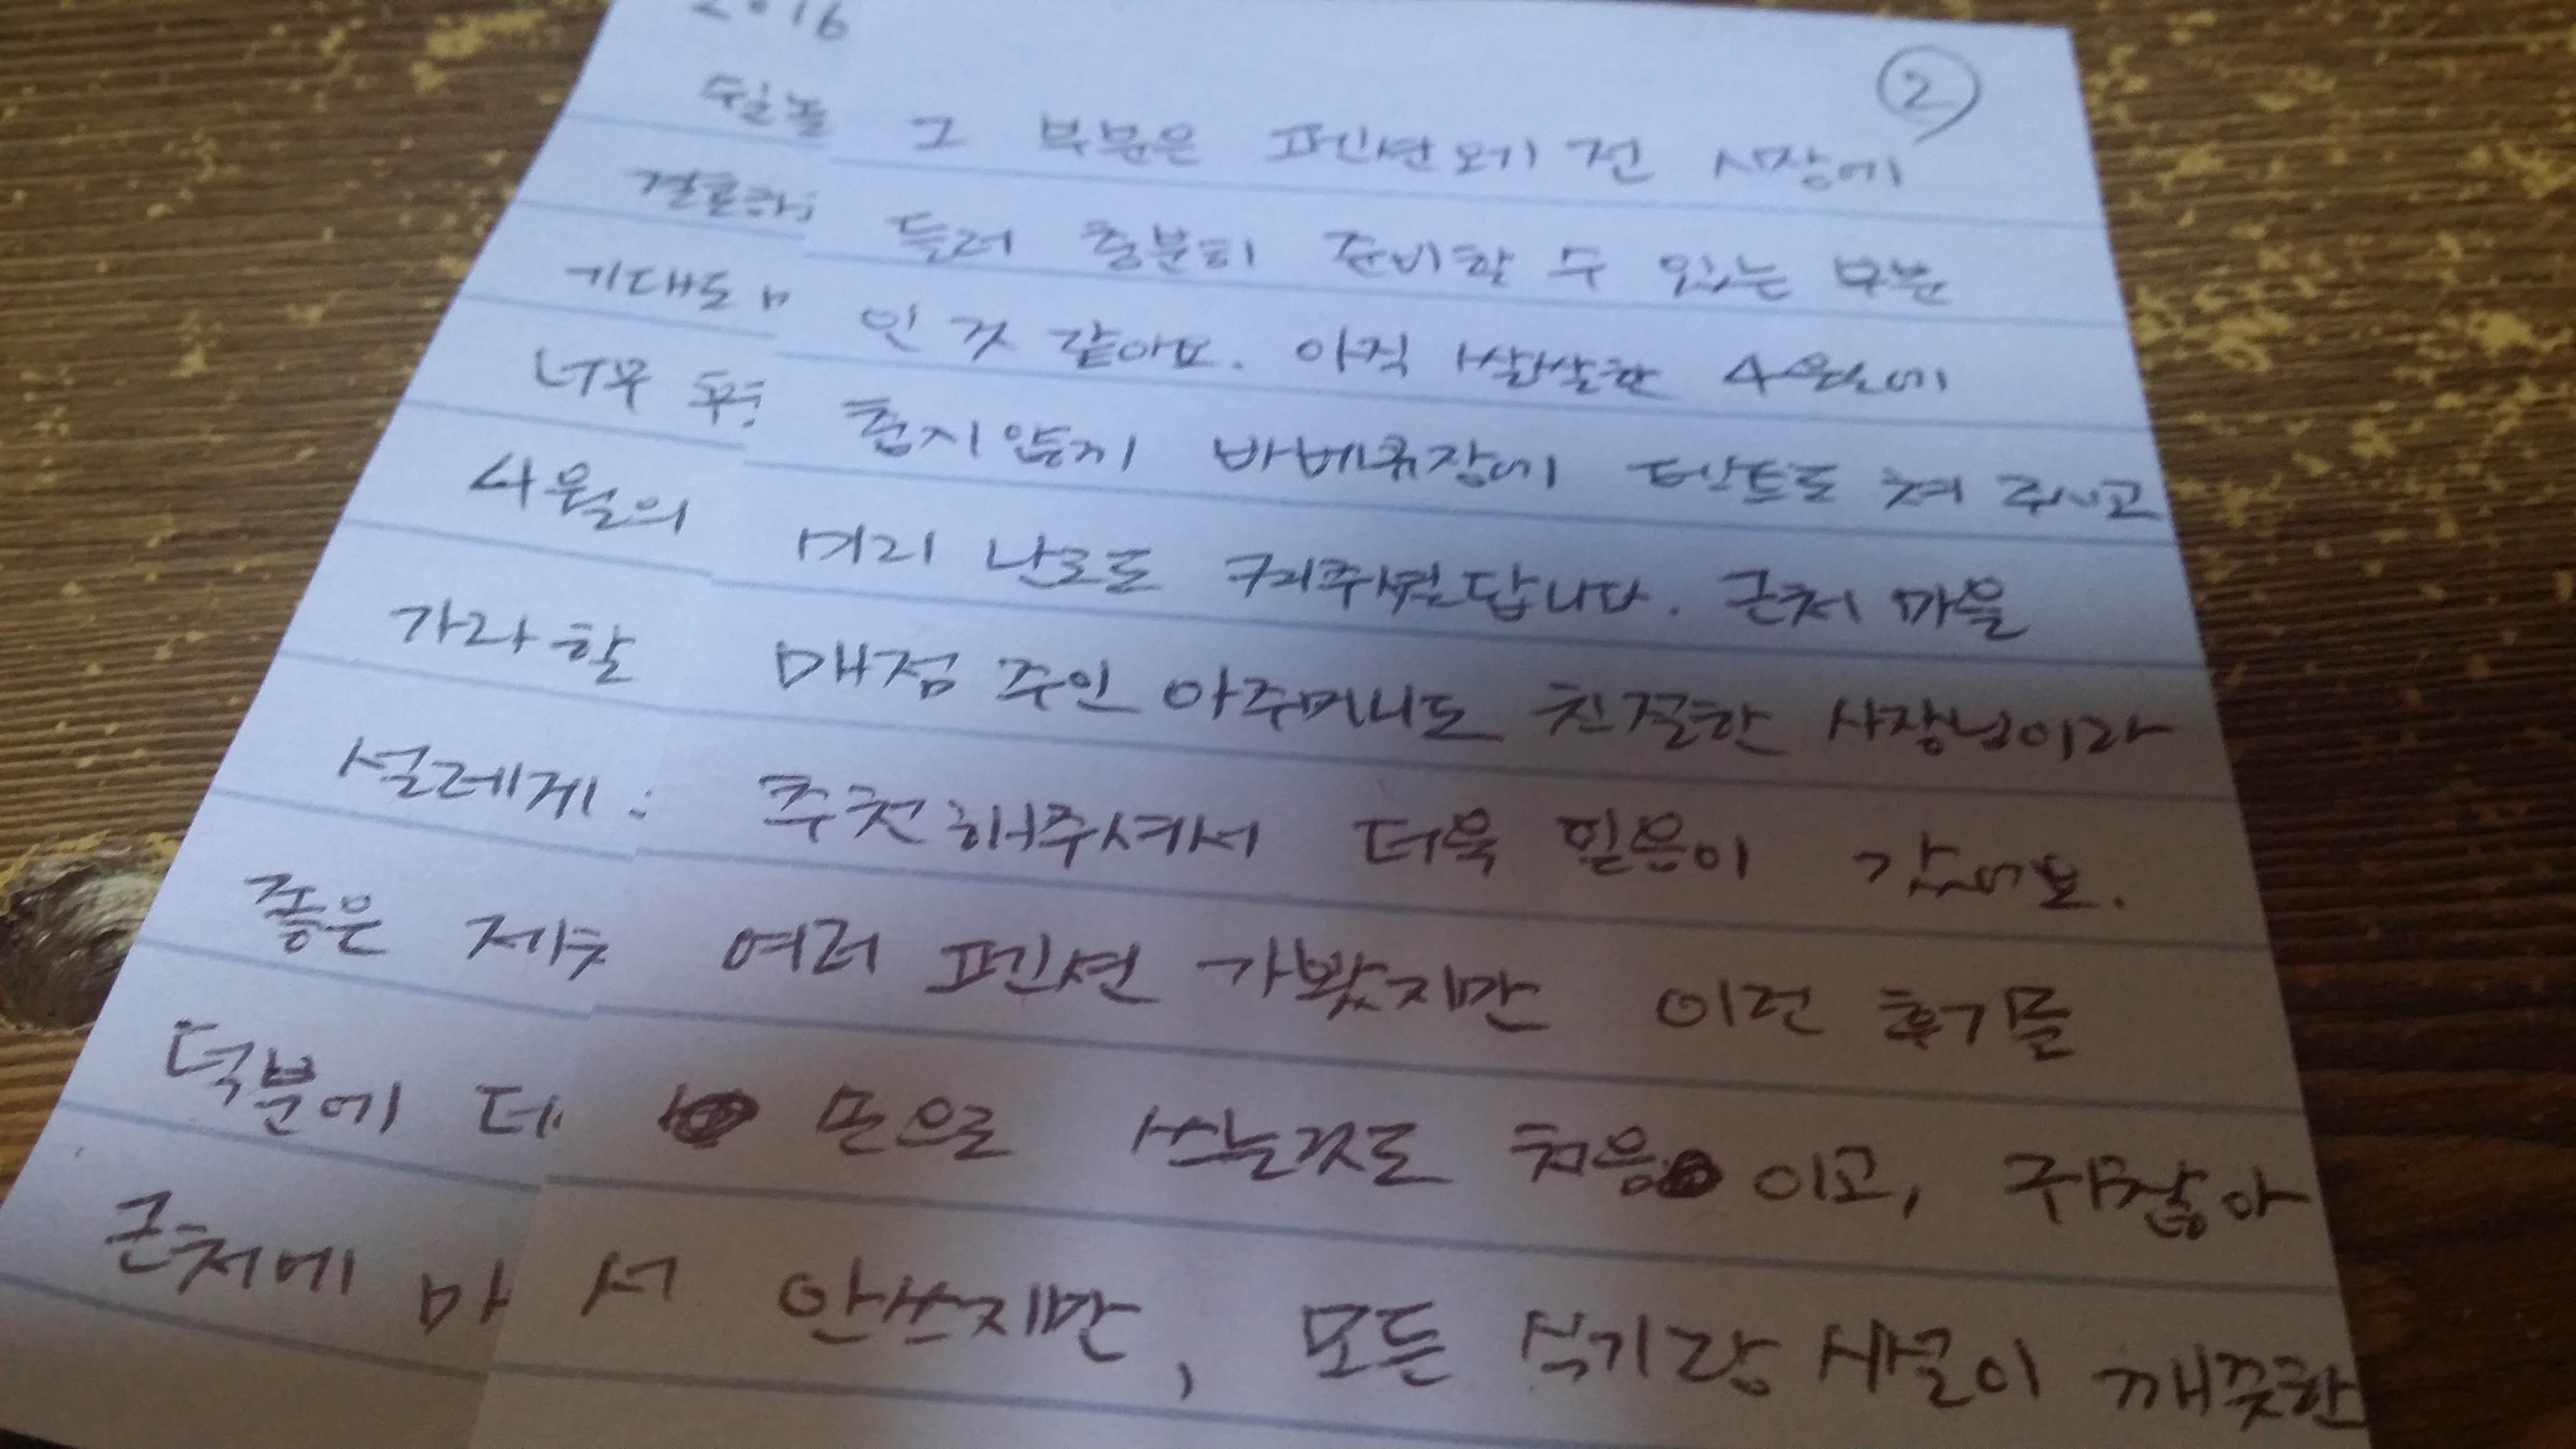 2016
②
그 부분은 펜션오기 전 시장에
들러 충분히 준비할 수 있는 부분
인 것 같아요. 아직 쌀쌀한 4월에
춥지않게 바베큐장에 텐트도 쳐 주시고
미리 난로도 켜주셨답니다. 근처 마을
매점 주인 아주머니도 친절한 사장님이라
추천해주셔서 더욱 믿음이 갔어요.
여러 펜션 가봤지만 이런 후기를
손으로 쓰는것도 처음 이고, 귀찮아
서 안쓰지만, 모든 식기랑 시설이 깨끗한
기대도
너무
4월의
가라 할
설레게
좋은 제주
덕분에
근처에 마